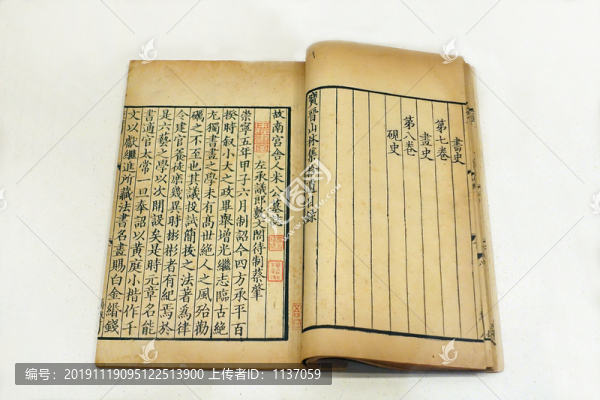 書史
第七卷
畫史
第八卷
硯史
寶晉山林集拾遺目錄
故南宮舍人米公墓
左承議郎 文閣待制蔡肇
崇寧五年甲子六月制詔今四方承平百
揆時叙小大之政畢舉增光繼志臨古絕
尤獨書畫之學未有高世絕人之風殆勸
礪之不至也其議設試簡拔之法著為律
令建官養徒庶幾異時彬彬者有紀焉於
是六藝之學以次開設矣是時元章名能
書適官太常一旦奉詔以黃庭小楷作千
文以獻繼進所藏法書名畫賜白金緡錢
编号：20191119095122513900 上传者ID：1137059